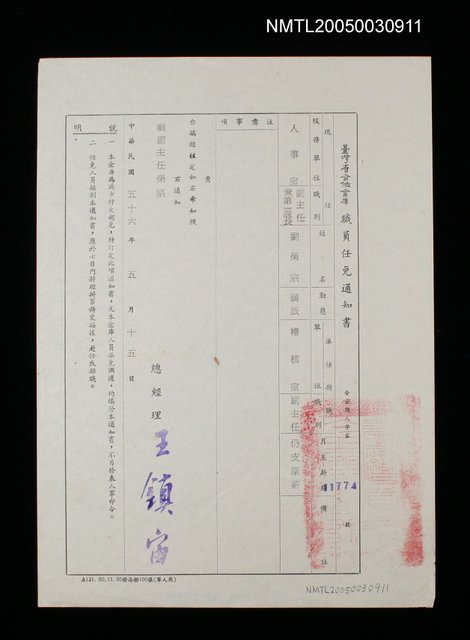 NMTL20050030911
臺灣省合作金庫 職員任免通知書
合金總人字第 11774 號
現任
服務單位 職別
姓名
動態
派任新職
單位 職別
月支薪
備註
人事室
副主任
兼第一課長
劉榮宗
調派
稽核室
副主任
仍支原薪
注意事項
查
台端經核定如右希知照
右通知
劉副主任榮宗
總經理 王鎮宙
中華民國五十六年五月十五日
說明
一 本金庫為減少行文起見,特訂定此項通知書,凡本金庫人員派免調遷,均填發本通知書,不另發表人事命令。
二 任免人員接到本通知書,應於七日內將經辦事務交接後,赴任或離職。
NMTL20050030911